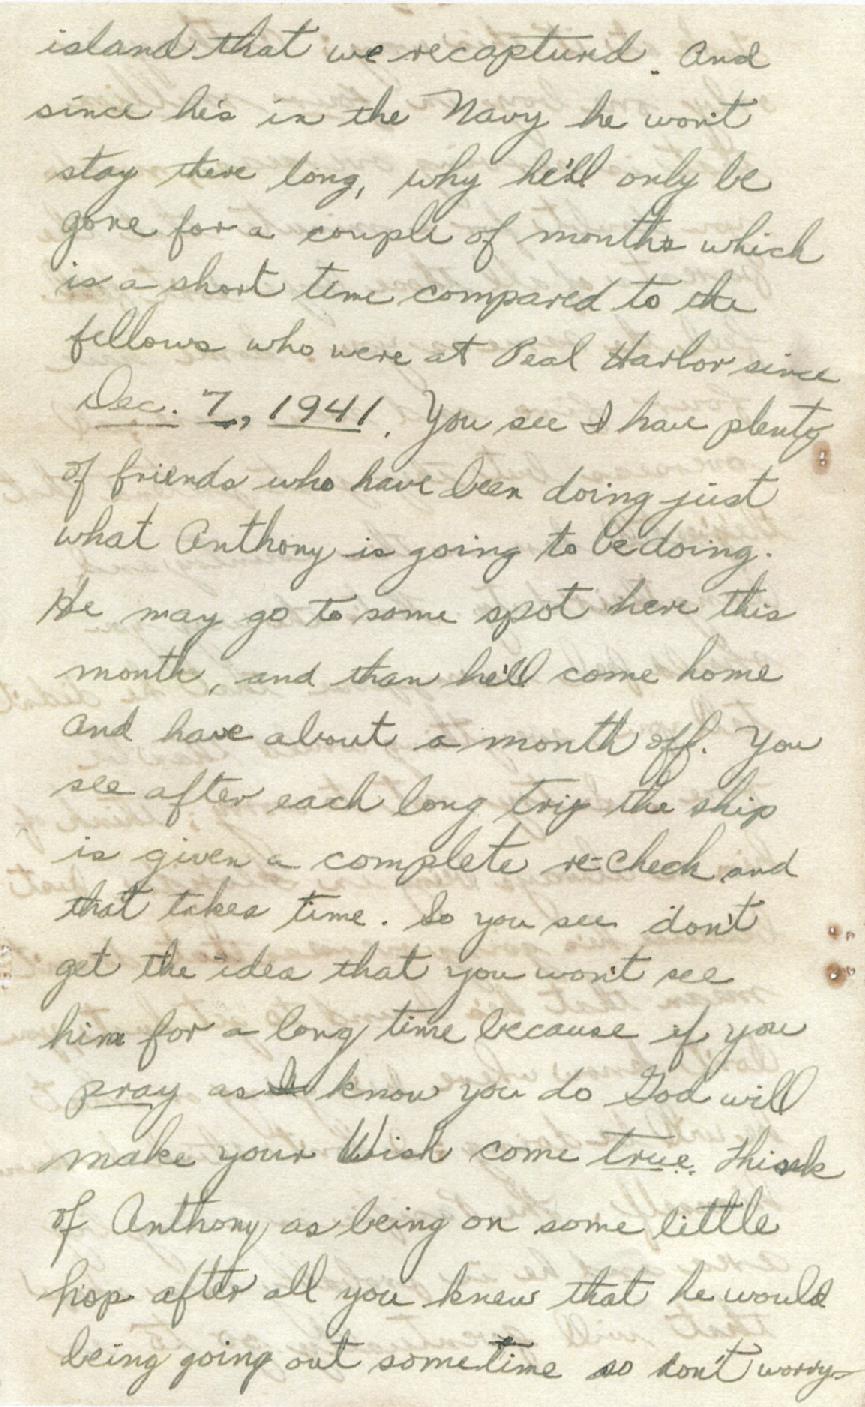 island that we recaptured. And
since he's in the Navy he won't
stay there long, why he'll only be
gone for a couple of months which
is a short time compared to the
fellows who were at Peal Harbor since
Dec. 7, 1941. You see I have plenty
of friends who have been doing just
what Anthony is going to be doing.
He may go to some spot here this
month, and than he'll come home
and have about a month off. You
see after each long trip the ship
is given a complete re-check and
that takes time. So you see don't
get the idea that you won't see
him for a long time because if you
pray as I know you do God will
make your Wish come true. Think
of Anthony as being on some little
hop after all you knew that he would
being going out sometime so don't worry-